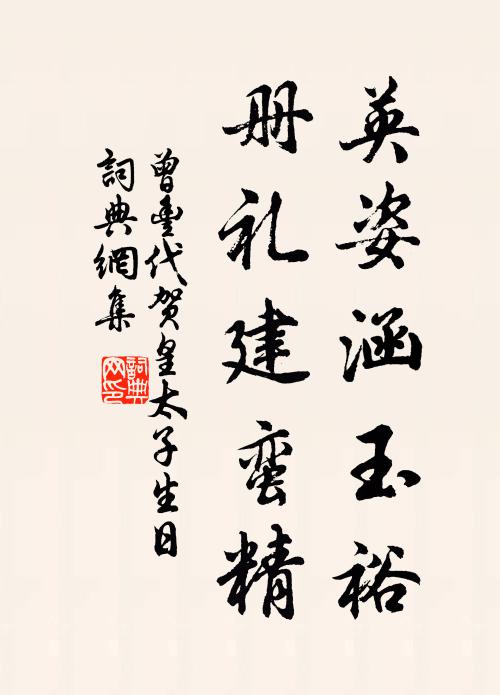 英姿涵玉裕
册礼建蛮精
曾豊代贺皇太子生日
詞典網集
詞典网印